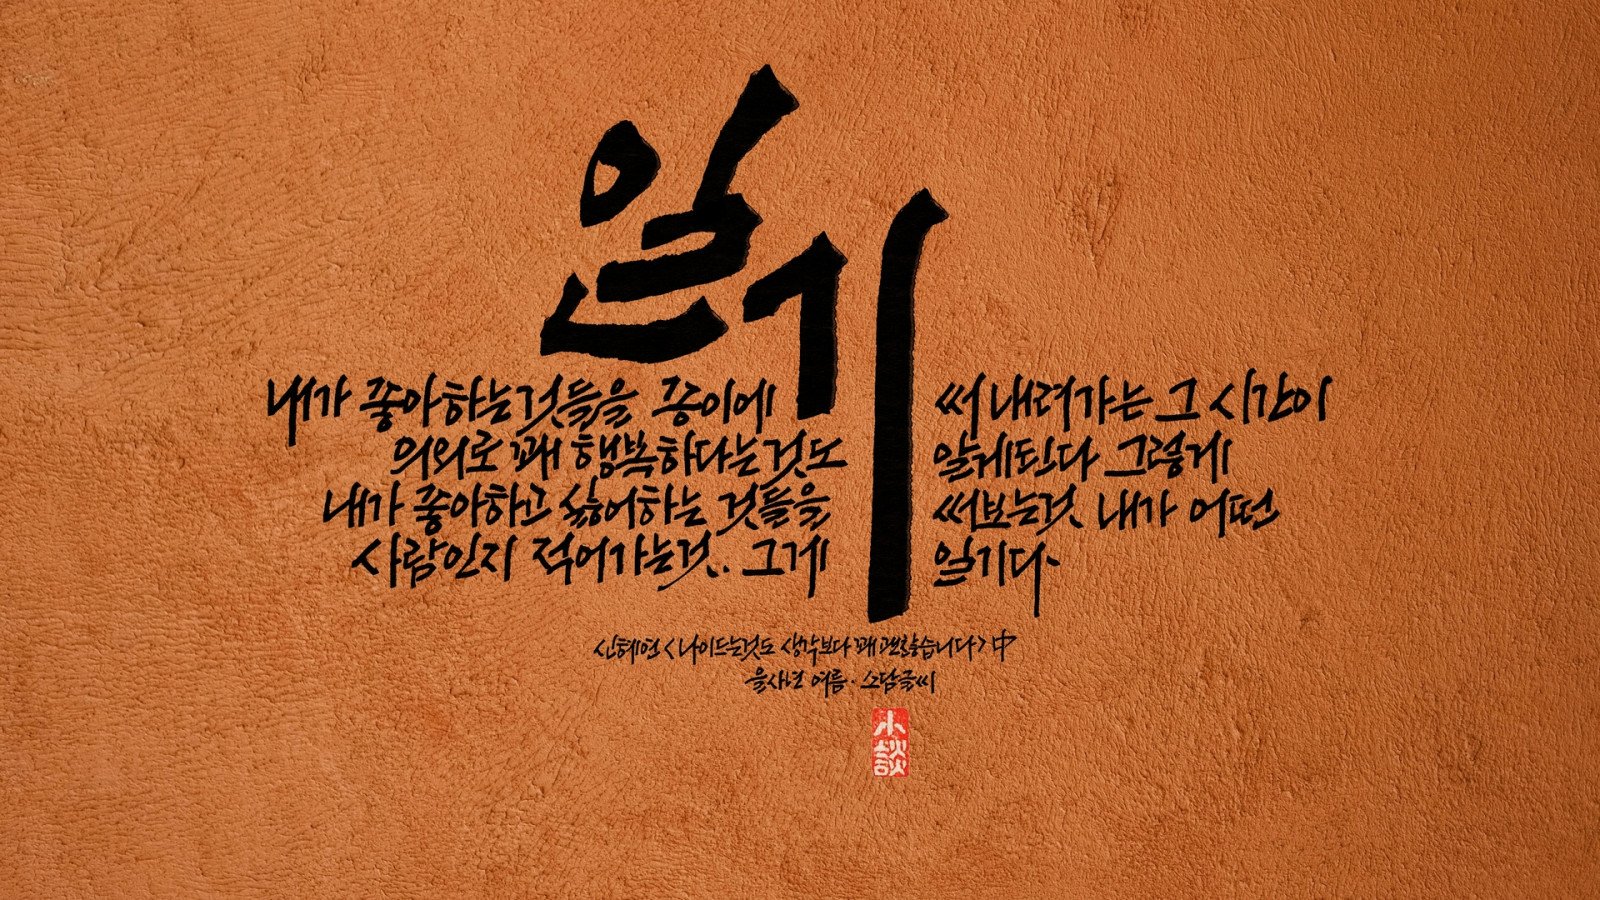 일기
내가 좋아하는것들을 종이에 써 내려가는 그 시간이
의외로 꽤 행복하다는것도 알게된다 그렇게
내가 좋아하고 싫어하는 것들을 써보는것. 내가 어떤
사람인지 적어가는것.. 그게 일기다.
신혜연 <나이드는것도 생각보다 꽤 괜찮습니다> 中
을사년 여름 · 소담글씨
小談